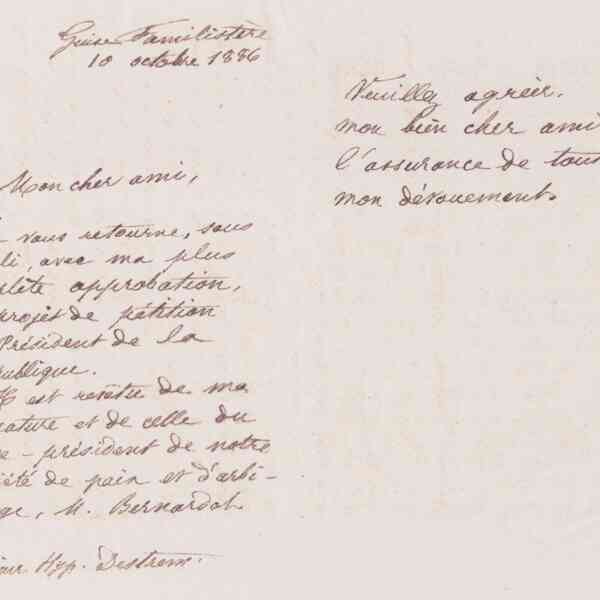 Guise Familistère
10 octobre 1886
Mon cher ami,
vous retourne, sous
li, avec ma plus
plète approbation,
projet de pétition
Président de la
publique.
est revêtu de ma
nature et de celle du
e-président de notre
iété de paix et d'arbi-
ge, M. Bernardot.
Hyp. Destrem.
Veuillez agréer,
mon bien cher ami
l'assurance de tous
mon dévouement.